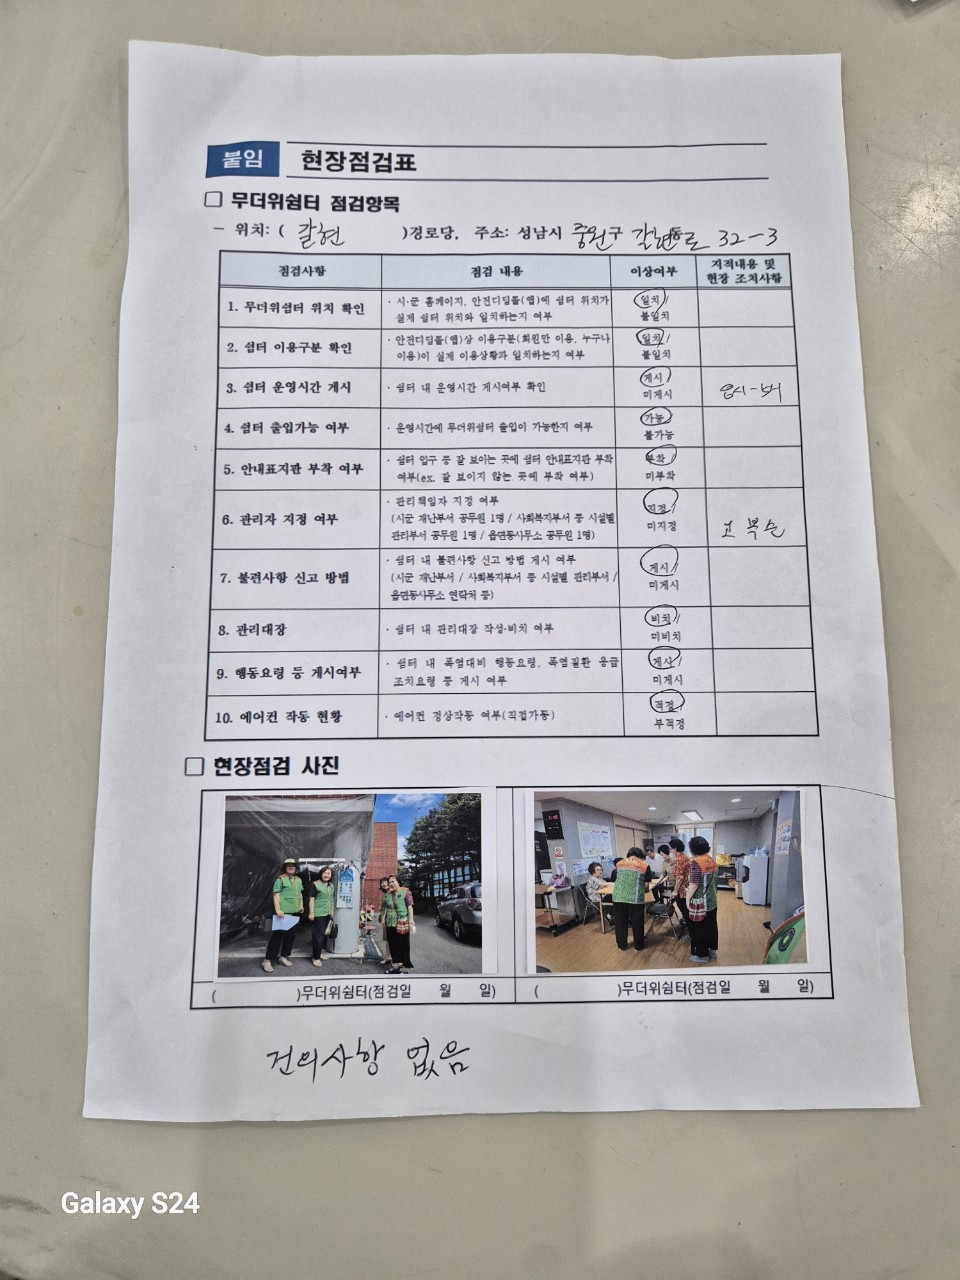 붙임 현장점검표
□ 무더위쉼터 점검항목
- 위치: ( 갈현 )경로당, 주소: 성남시 중원구 갈현동로 32-3
점검사항 점검 내용 이상여부 지적내용 및 현장 조치사항
1. 무더위쉼터 위치 확인 · 시·군 홈페이지, 안전디딤돌(앱)에 쉼터 위치가 일치/
실제 쉼터 위치와 일치하는지 여부 불일치
2. 쉼터 이용구분 확인 · 안전디딤돌(앱)상 이용구분(회원만 이용, 누구나 일치/
이용)이 실제 이용상황과 일치하는지 여부 불일치
3. 쉼터 운영시간 게시 · 쉼터 내 운영시간 게시여부 확인 게시/
미게시
4. 쉼터 출입가능 여부 · 운영시간에 무더위쉼터 출입이 가능한지 여부 가능/
불가능
5. 안내표지판 부착 여부 · 쉼터 입구 등 잘 보이는 곳에 쉼터 안내표지판 부착 부착/
여부(ex. 잘 보이지 않는 곳에 부착 여부) 미부착
6. 관리자 지정 여부 · 관리책임자 지정 여부 지정/
(시군 재난부서 공무원 1명 / 사회복지부서 등 시설별 미지정
관리부서 공무원 1명 / 읍면동사무소 공무원 1명) 고복순
7. 불편사항 신고 방법 · 쉼터 내 불편사항 신고 방법 게시 여부 게시/
(시군 재난부서 / 사회복지부서 등 시설별 관리부서 / 미게시
읍면동사무소 연락처 등)
8. 관리대장 · 쉼터 내 관리대장 작성·비치 여부 비치/
미비치
9. 행동요령 등 게시여부 · 쉼터 내 폭염대비 행동요령, 폭염질환 응급 게시/
조치요령 등 게시 여부 미게시
10. 에어컨 작동 현황 · 에어컨 정상작동 여부(직접가동) 적정/
부적정
□ 현장점검 사진
( )무더위쉼터(점검일 월 일) ( )무더위쉼터(점검일 월 일)
건의사항 없음
Galaxy S24